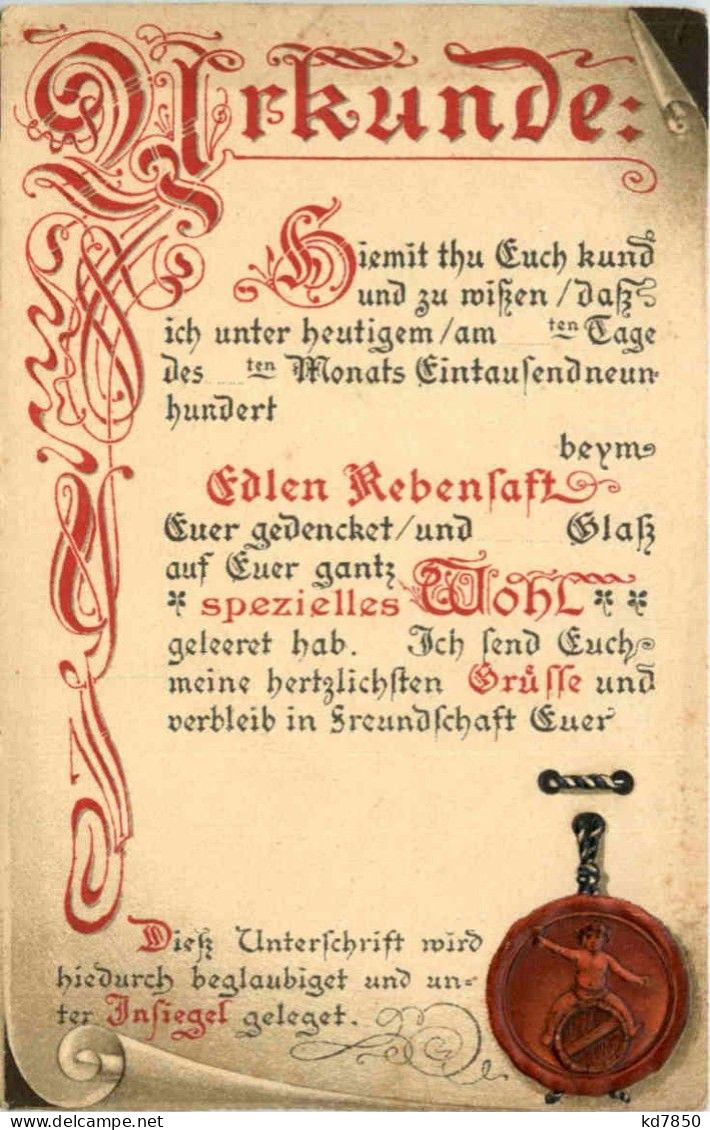 Urkunde:
Hiemit thu Euch kund
und zu wißen/daß
ich unter heutigem/am ten Tage
des ten Monats Eintausendneun-
hundert
beym
Edlen Rebensaft
Euer gedencket/und Glaß
auf Euer gantz
spezielles Wohl
geleeret hab. Ich send Euch
meine hertzlichsten Grüsse und
verbleib in Freundschaft Euer
Dieß Unterschrift wird
hiedurch beglaubiget und un-
ter Insiegel geleget.
kd7850